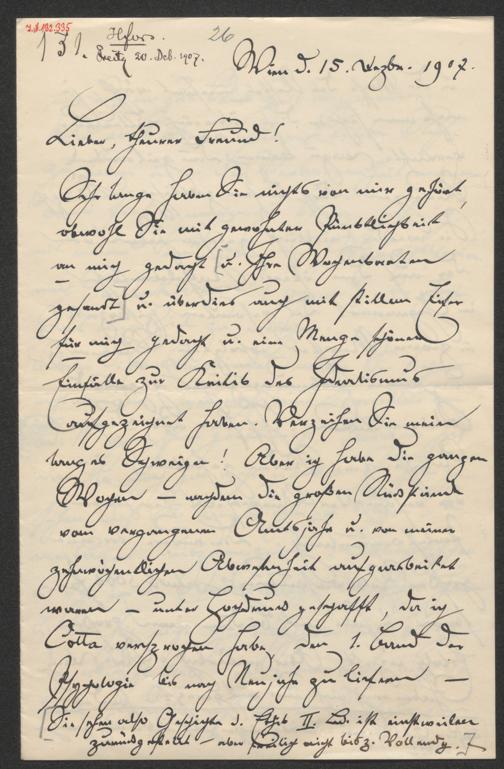 I.N. 132.335
131. Hfors. 26
Freitg 20. Deb. 1907.
Wien d. 15. Dezbr. 1907.
Lieber, theurer Freund!
Sehr lange haben Sie nichts von mir gehört,
obwohl Sie mit gewohnter Pünktlichkeit
an mich gedacht [u. Ihre Wochenkarten
gesandt] u. überdies auch mit stillem Eifer
für mich gedacht u. eine Menge schöner
Einfälle zur Kritik des Idealismus
aufgezeichnet haben. Verzeihen Sie mein
langes Schweigen! Aber ich habe die ganzen
Wochen – nachdem die großen Rückstände
vom vergangenen Amtsjahr u. von meiner
zehnwöchentlichen Abwesenheit aufgearbeitet
waren – unter Hochdruck geschafft, da ich
Cotta versprochen habe, den 1. Band der
Psychologie bis nach Neujahr zu liefern –
[Sie sehen also Geschichte d. Ethik II. Bd. ist einstweilen
zurückgestellt – aber freilich nicht bis z. Vollendg. 7